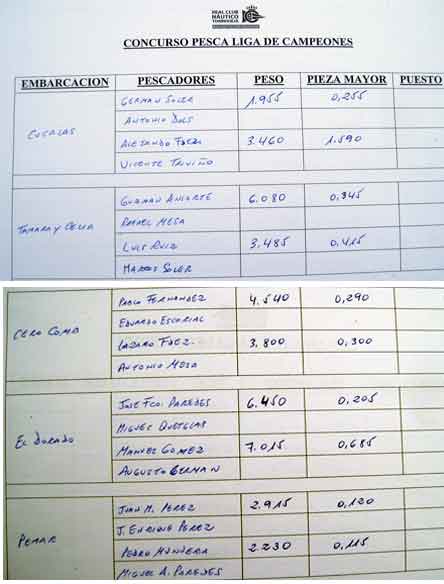 REAL CLUB
NÁUTICO
TORREVIEJA
CONCURSO PESCA LIGA DE CAMPEONES
EMBARCACION PESCADORES PESO PIEZA MAYOR PUESTO
GERMAN SOLER 1.955 0,255
ANTONIO DOLS
ALEJANDO FDEZ. 3.460 1.590
VICENTE TRIVIÑO
GUZMAN ANIORTE 6.080 0,345
TAMARA Y CELIA RAFAEL MESA
LUIS RUIZ 3.485 0,415
MARCOS SOLER
PABLO FERNANDEZ 4.540 0,290
CERO COMB EDUARDO ESCORIAL
LAZARO FDEZ. 3.800 0,300
ANTONIO MESA
JOSE FCO. PAREDES 6.450 0,205
EL DORADO MIGUEL QUETGLAS
MANUEL GOMEZ 7.015 0,685
AUGUSTO GERMAN
JUAN M. PEREZ 2.915 0,120
PEMAR J. ENRIQUE PEREZ
PEDRO MUNUERA 2.230 0,115
MIGUEL A. PAREDES